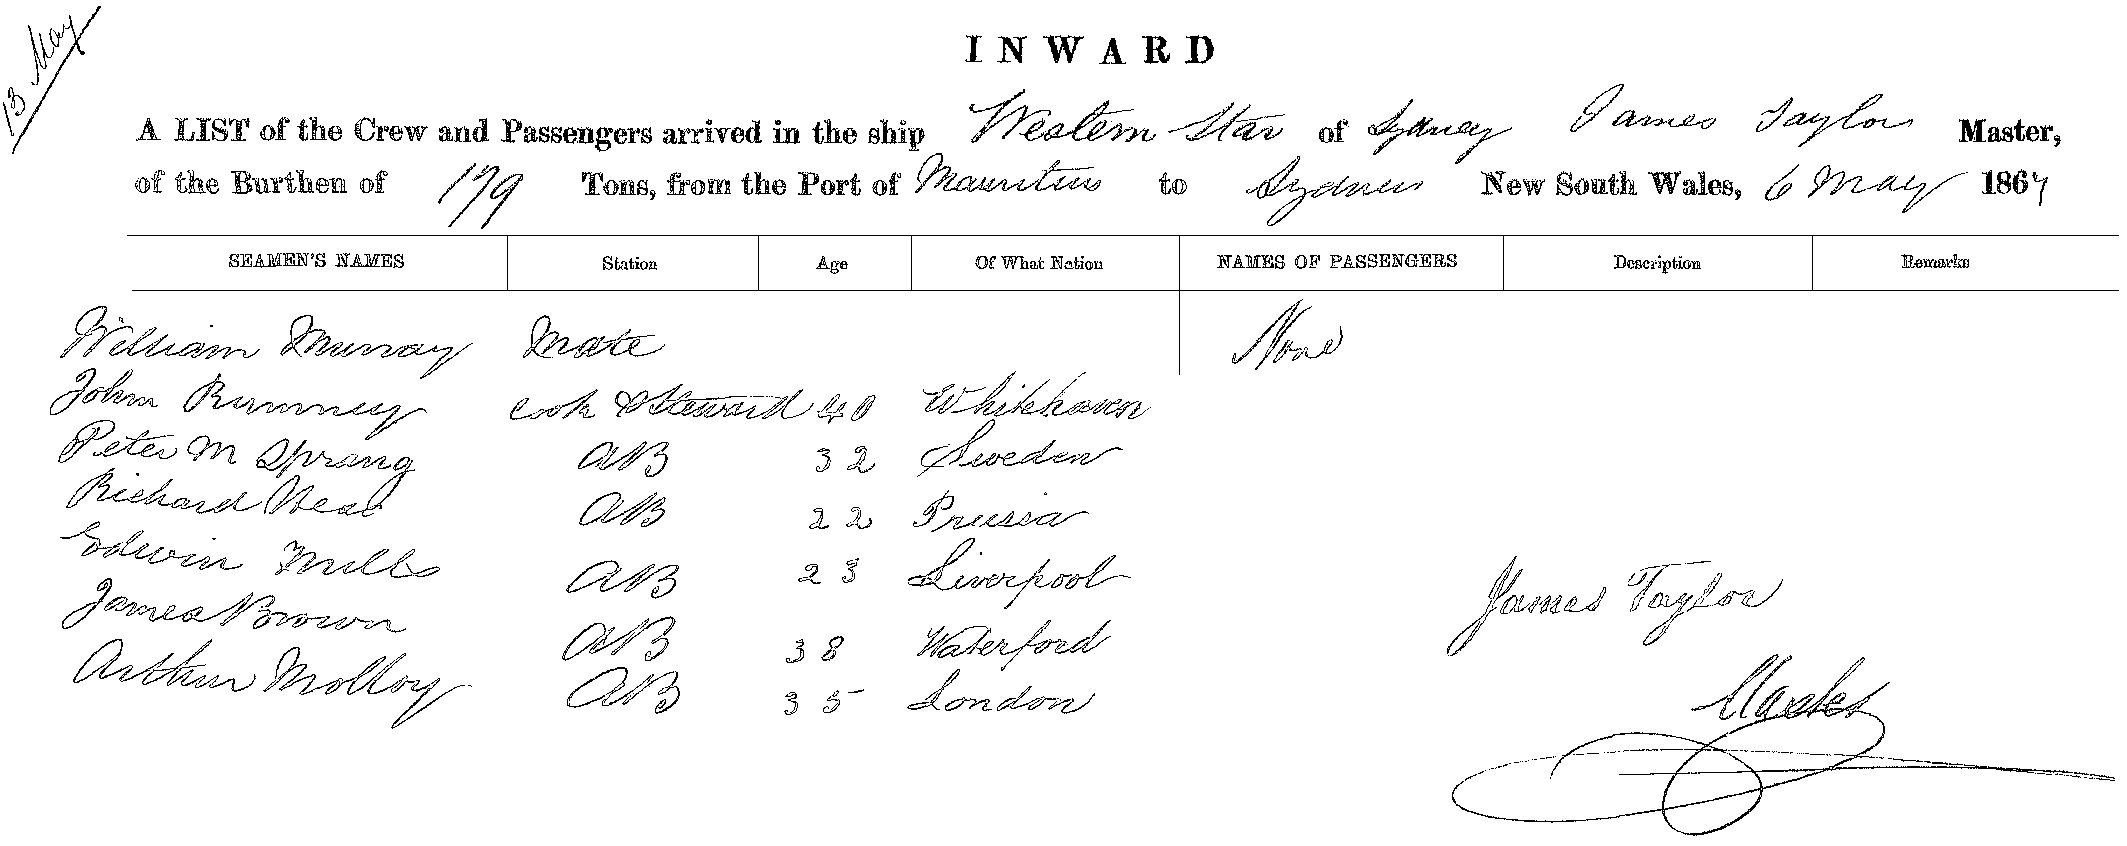 13 May
INWARD
A LIST of the Crew and Passengers arrived in the ship Western Star of Sydney James Taylor Master,
of the Burthen of 179 Tons, from the Port of Mauritius to Sydney New South Wales, 6 May 1864
SEAMEN'S NAMES Station Age Of What Nation NAMES OF PASSENGERS Description Remarks
William Murray Mate None
John Rumney Cook & Steward 40 Whitehaven
Peter M Sprang AB 32 Sweden
Richard AB 22 Prussia
Edwin Mills AB 23 Liverpool
James Brown AB 38 Waterford
Arthur Molloy AB 35 London
James Taylor
Master